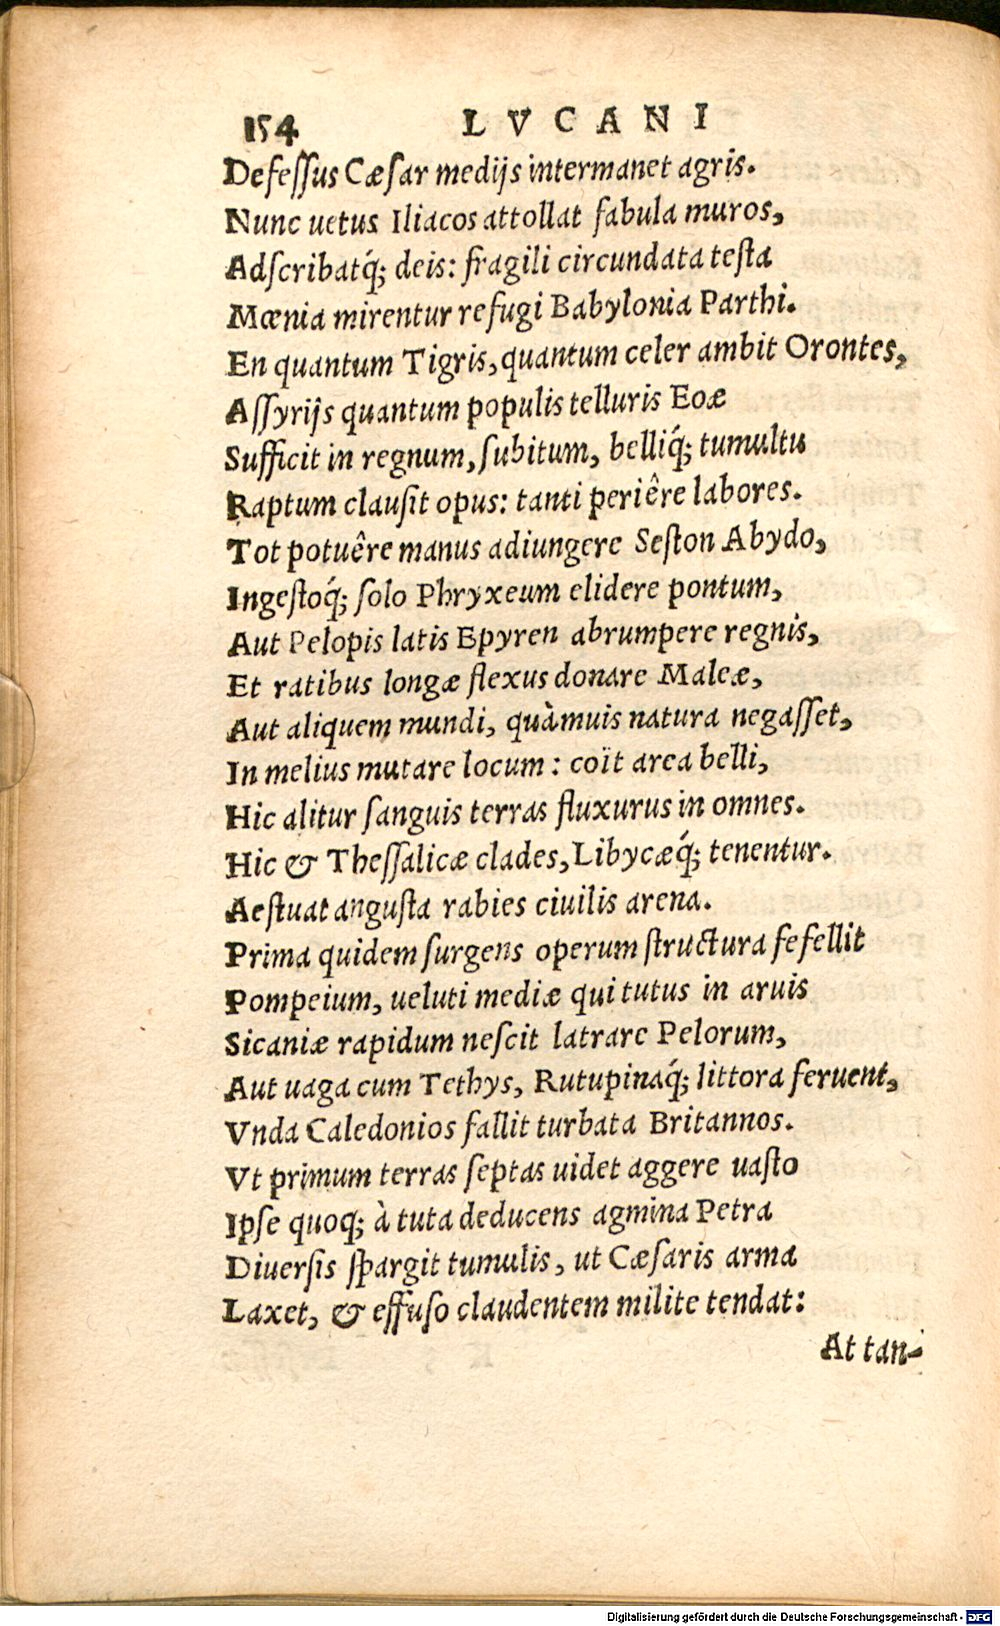 154 LVCANI
Defeſſus Cæſar medijs intermanet agris.
Nunc uetus Iliacos attollat fabula muros,
Adſcribatq́; deis: fragili circundata teſta
Mœnia mirentur refugi Babylonia Parthi.
En quantum Tigris, quantum celer ambit Orontes,
Aſſyrijs quantum populis telluris Eoæ
Sufficit in regnum, ſubitum, belliq́; tumultu
Raptum clauſit opus: tanti periêre labores.
Tot potuêre manus adiungere Seſton Abydo,
Ingeſtoq́; ſolo Phryxeum elidere pontum,
Aut Pelopis latis Epyren abrumpere regnis,
Et ratibus longæ flexus donare Maleæ,
Aut aliquem mundi, quàmuis natura negaſſet,
In melius mutare locum: coït area belli,
Hic alitur ſanguis terras fluxurus in omnes.
Hic & Theſſalicæ clades, Libycæq́; tenentur.
Aeſtuat anguſta rabies ciuilis arena.
Prima quidem ſurgens operum ſtructura fefellit
Pompeium, ueluti mediæ qui tutus in aruis
Sicaniæ rapidum neſcit latrare Pelorum,
Aut uaga cum Tethys, Rutupinaq́; littora feruent,
Vnda Caledonios fallit turbata Britannos.
Vt primum terras ſeptas uidet aggere uaſto
Ipſe quoq́; à tuta deducens agmina Petra
Diuerſis ſpargit tumulis, ut Cæſaris arma
Laxet, & effuſo claudentem milite tendat:
At tan-
Digitalisierung gefördert durch die Deutsche Forschungsgemeinschaft - DFG